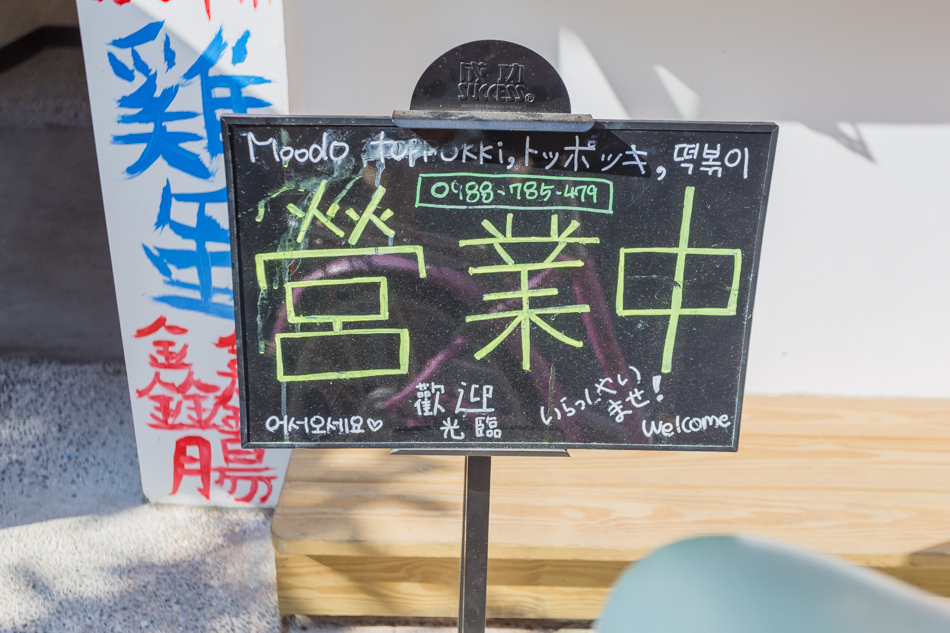 成功
SUCCESS
Moodo toppokki,トッポッキ,떡볶이
0988-785-479
營業中
어서오세요♡
歡迎
光臨
いらっしゃい
ませ!
welcome
雞
蛋
鑫鑫
腸